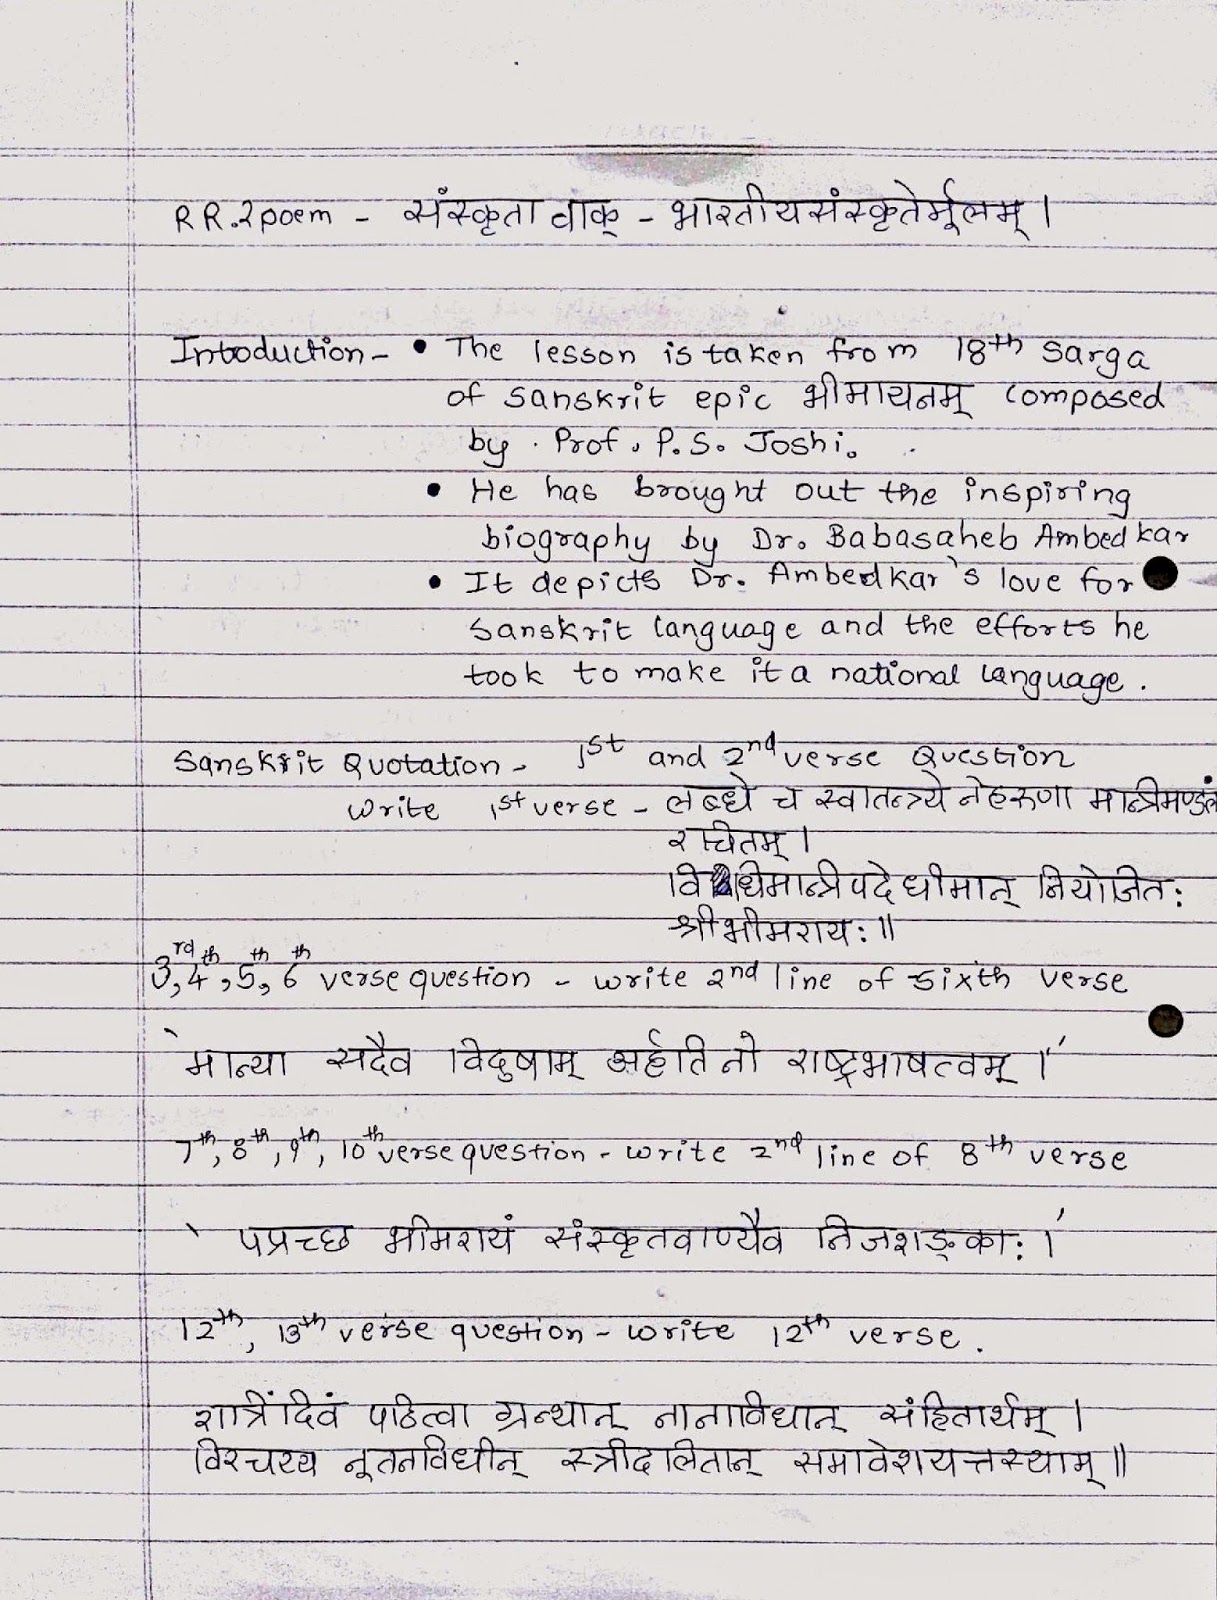 RR.2poem - संस्कृता वाक् - भारतीयसंस्कृतेर्मूलम् ।
Intoduction - • The lesson is taken from 18th sarga
of sanskrit epic भीमायनम् composed
by . Prof. P.S. Joshi.
• He has brought out the inspiring
biography by Dr. Babasaheb Ambedkar
• It depicts Dr. Ambedkar's love for
sanskrit language and the efforts he
took to make it a national language.
Sanskrit Quotation - 1st and 2nd verse Question
write 1st verse - लब्धे च स्वातन्त्र्ये नेहरुणा मान्त्रिमण्डलं
रचितम् ।
विधिमान्त्रिपदे धीमान् नियोजितः
श्रीभीमरायः ॥
3rd, 4th, 5th, 6th verse question - write 2nd line of sixth verse
'मान्या सदैव विदुषाम् अर्हति नो राष्ट्रभाषत्वम् ।'
7th, 8th, 9th, 10th verse question - write 2nd line of 8th verse
' पप्रच्छ भीमरायं संस्कृतवाण्यैव निजशङ्काः ।'
12th, 13th verse question - write 12th verse.
रात्रिंदिवं पठित्वा ग्रन्थान् नानाविधान् संहितार्थम् ।
विरचय्य नूतनविधीन् स्त्रीदलितान् समावेशयत्तस्याम् ॥